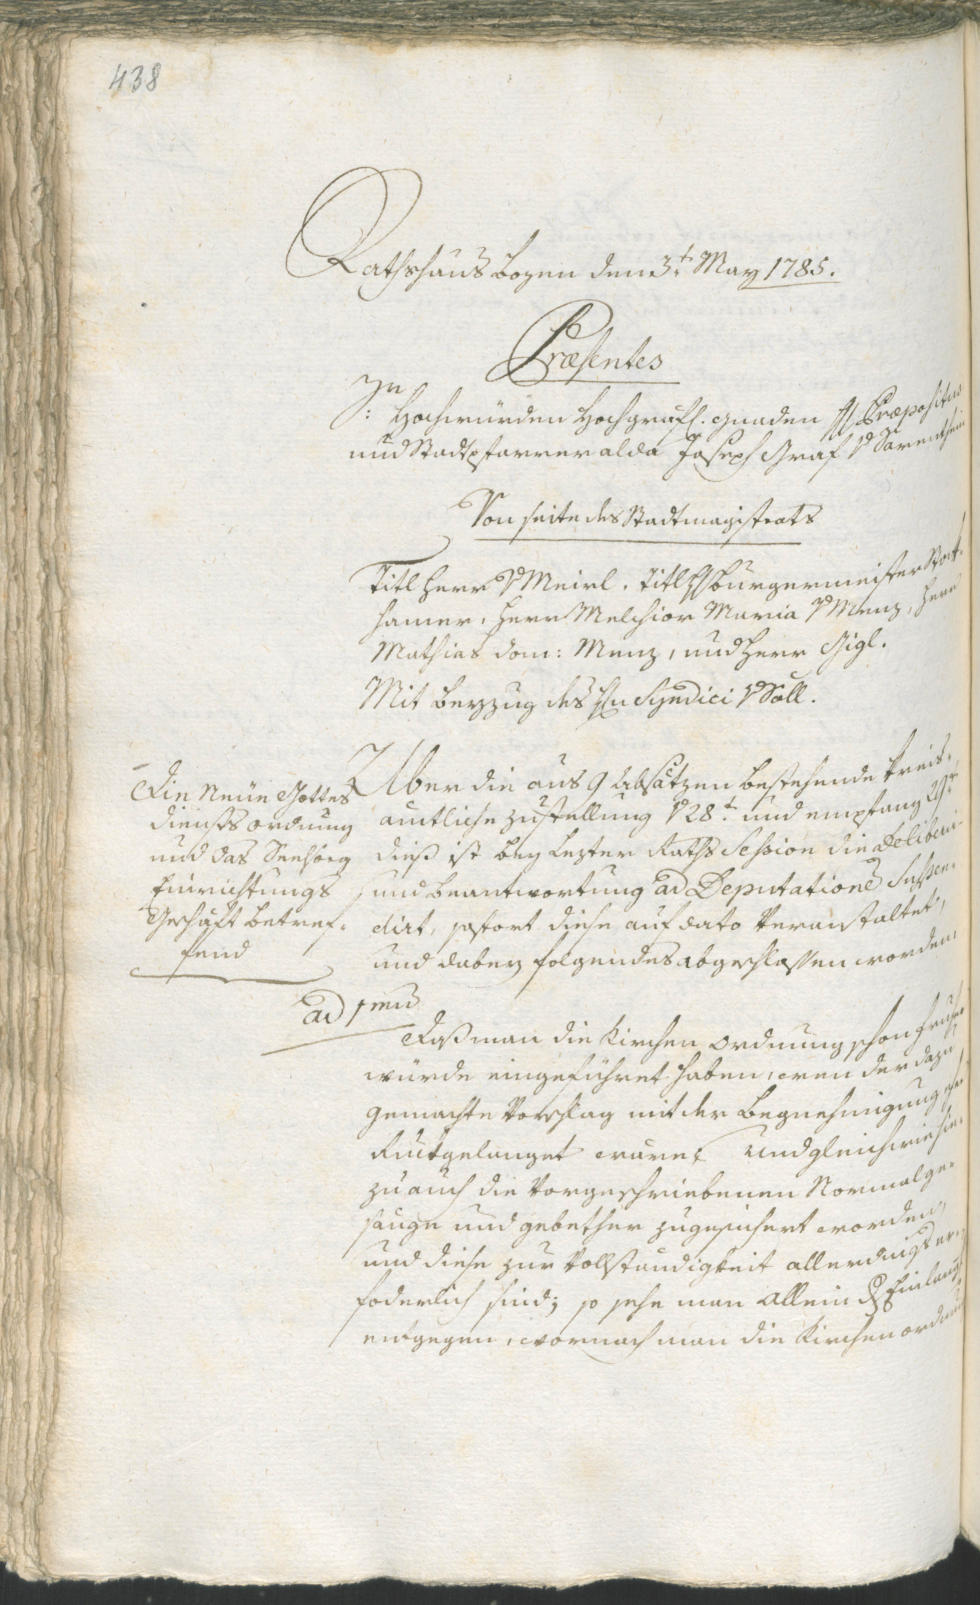 438
Rathshaus Bozen den 3.t May 1785.
Præsentes
Jhr
: Hochwürden Hochgräfl. Gnaden H. Præpositus
und Stadtpfarrer alda Joseph Graf v Sarenthein
Von seite des Stadtmagistrats
Titl Herr v Meirl. Titl H Burgermeister Stock-
hamer, Herr Melchior Maria v Menz, Herr
Mathias Dom: Menz, und Herr Gigl.
Mit Beyzug des Hn Syndici v Söll.
Die Neüe Gottes
diensts ordnung
und das Seelsorg
Einrichtungs
Geschäft betref-
fend
Uber die aus 9 Absätzen bestehende Kreis-
amtliche Zustellung v 28.t und empfang 29.t
dieß ist bey lezter Raths Session die Deliberi-
und Beantwortung ad Deputationē suspen-
dirt, sofort diese auf dato veranstaltet,
und dabey folgendes abgeschlossen worden.
ad 1mū
Daß man die Kirchen ordnung schon fruher
würde eingeführet haben, wen der dazu
gemachte Vorschlag mit der Begnehmigung ehe
rukgelanget ware; und gleichwie hie-
zu auch die vorgeschriebenen Normalge-
sänge und gebether zugesichert worden,
und diese zur Vollständigkeit allerdings er-
foderlich sind; so sehe man allein dem Einlang
entgegen, wornach man die Kirchenordnung